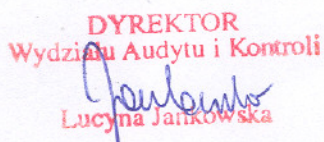 DYREKTOR
Wydziału Audytu i Kontroli
Lucyna Jankowska